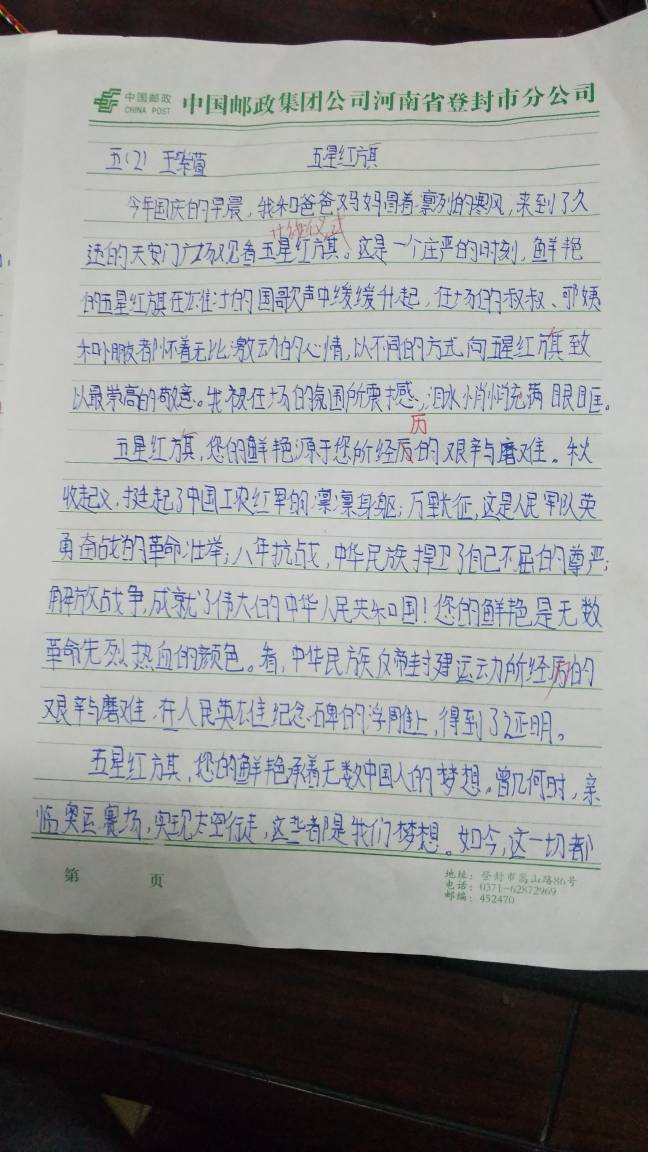 中国邮政 CHINA POST 中国邮政集团公司河南省登封市分公司
五(2) 王紫萱 五星红旗
今年国庆的早晨，我和爸爸妈妈冒着凛列的寒风，来到了久
升旗仪式
违的天安门广场观看五星红旗。这是一个庄严的时刻，鲜艳
的五星红旗在雄壮的国歌声中缓缓升起，在场的叔叔、阿姨
和小朋友都怀着无比激动的心情，以不同的方式向五星红旗致
以最崇高的敬意。我被在场的氛围所震撼，泪水悄悄充满眼眶。
历
五星红旗，您的鲜艳源于您所经历的艰辛与磨难。秋
收起义，挺起了中国工农红军的凛凛身躯；万里长征，这是人民军队英
勇奋战的革命壮举；八年抗战，中华民族捍卫了自己不屈的尊严；
解放战争，成就了伟大的中华人民共和国！您的鲜艳是无数
革命先烈热血的颜色。看，中华民族反帝封建运动所经历的
艰辛与磨难，在人民英雄纪念碑的浮雕上，得到了证明。
五星红旗，您的鲜艳承着无数中国人的梦想。曾几何时，亲
临奥运赛场，实现太空行走，这些都是我们梦想。如今，这一切都
第 页
地址：登封市嵩山路86号
电话：0371-62872969
邮编：452470